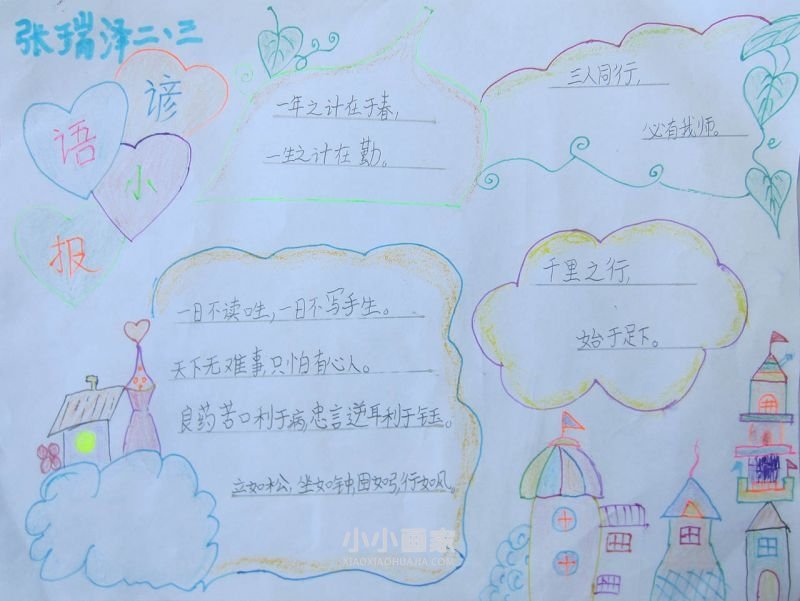 张瑞泽二、三
谚
语
小
报
一年之计在于春,
一生之计在勤。
三人同行,
必有我师。
千里之行,
始于足下。
一日不读口生,一日不写手生。
天下无难事,只怕有心人。
良药苦口利于病,忠言逆耳利于
立如松,坐如钟,
行如风。
小小画家
XIAOXIAOHUAJIA.COM